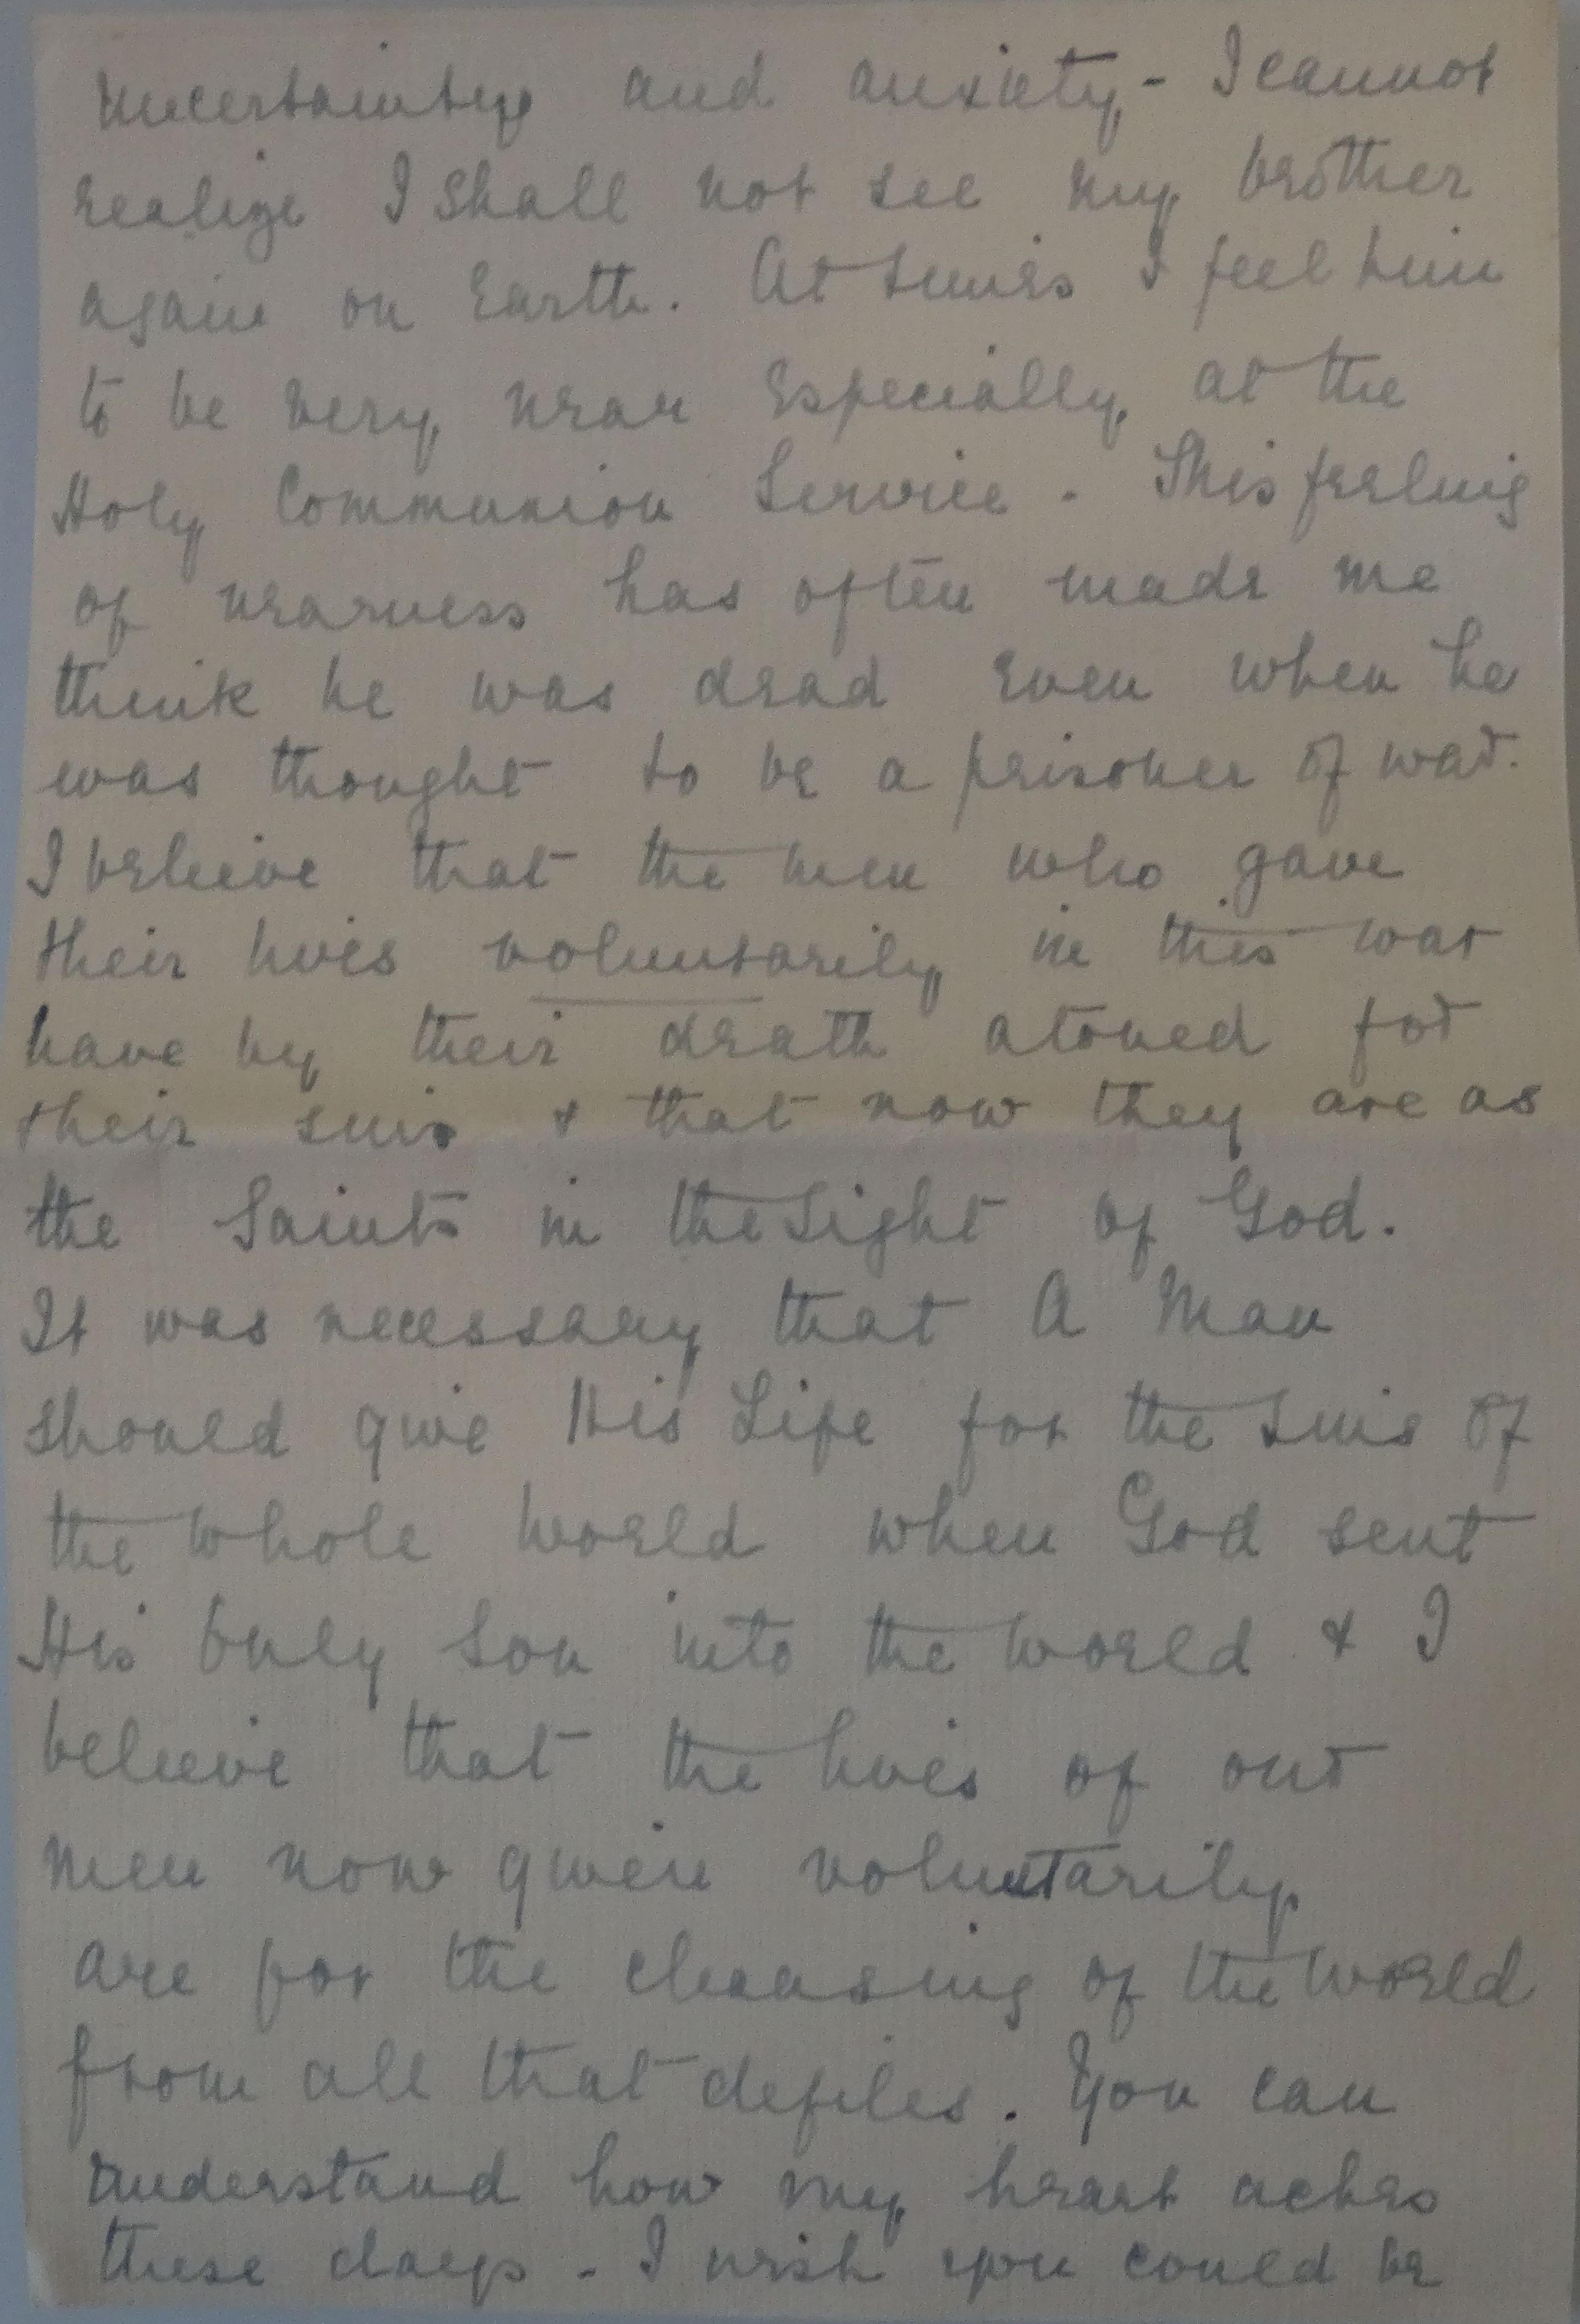 uncertainty and anxiety - I cannot
realize I shall not see my brother
again on Earth. At times I feel him
to be very near especially at the
Holy Communion Service - This feeling
of nearness has often made me
think he was dead even when he
was thought to be a prisoner of war.
I believe that the men who gave
their lives voluntarily in this war
have by their death atoned for
their sins & that now they are as
the Saints in the Sight of God.
It was necessary that A Man
should give His Life for the sins of
the whole World when God sent
His Only Son into the World & I
believe that the lives of our
men now given voluntarily
are for the cleansing of the World
from all that defiles. You can
understand how my heart aches
these days - I wish you could be